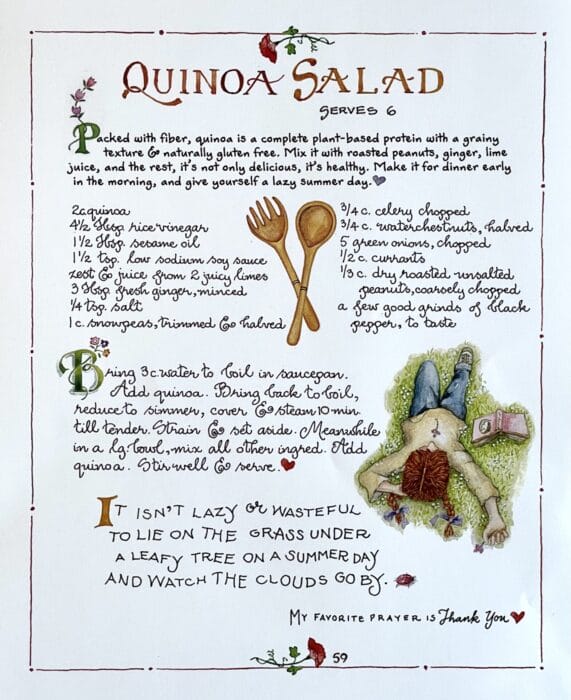 QUINOA SALAD
SERVES 6
Packed with fiber, quinoa is a complete plant-based protein with a grainy
texture & naturally gluten free. Mix it with roasted peanuts, ginger, lime
juice, and the rest, it's not only delicious, it's healthy. Make it for dinner early
in the morning, and give yourself a lazy summer day.
2c. quinoa
4½ tbsp. rice vinegar
1½ tbsp. sesame oil
1½ tsp. low sodium soy sauce
zest & juice from 2 juicy limes
3 tbsp. fresh ginger, minced
¼ tsp. salt
1 c. snowpeas, trimmed & halved
3/4 c. celery chopped
3/4 c. waterchestnuts, halved
5 green onions, chopped
1/2 c. currants
1/3 c. dry roasted unsalted
peanuts, coarsely chopped
a few good grinds of black
pepper, to taste
Bring 3 c. water to boil in saucepan.
Add quinoa. Bring back to boil,
reduce to simmer, cover & steam 10 min.
till tender. Strain & set aside. Meanwhile
in a lg. bowl, mix all other ingred. Add
quinoa. Stir well & serve.
IT ISN'T LAZY or WASTEFUL
TO LIE ON THE GRASS UNDER
A LEAFY TREE ON A SUMMER DAY
AND WATCH THE CLOUDS GO BY.
MY FAVORITE PRAYER IS Thank You
59